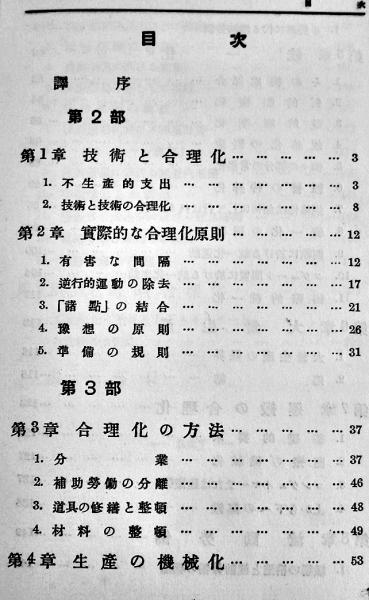 目 次
目 次
譯 序
第2部
第1章 技術と合理化 … … … … … 3
1. 不生產的支出 … … … … … … 3
2. 技術と技術の合理化 … … … … … 8
第2章 實際的な合理化原則 … … … … 12
1. 有害な間隔 … … … … … … 12
2. 逆行的運動の除去 … … … … … 17
3. 「諸點」の結合 … … … … … 21
4. 豫想の原則 … … … … … … 26
5. 準備の規則 … … … … … … 31
第3部
第3章 合理化の方法 … … … … … 37
1. 分業 … … … … … … 37
2. 補助勞働の分離 … … … … … 46
3. 道具の修繕と整頓 … … … … … 48
4. 材料の整頓 … … … … … … 49
第4章 生產の機械化 … … … … … 53